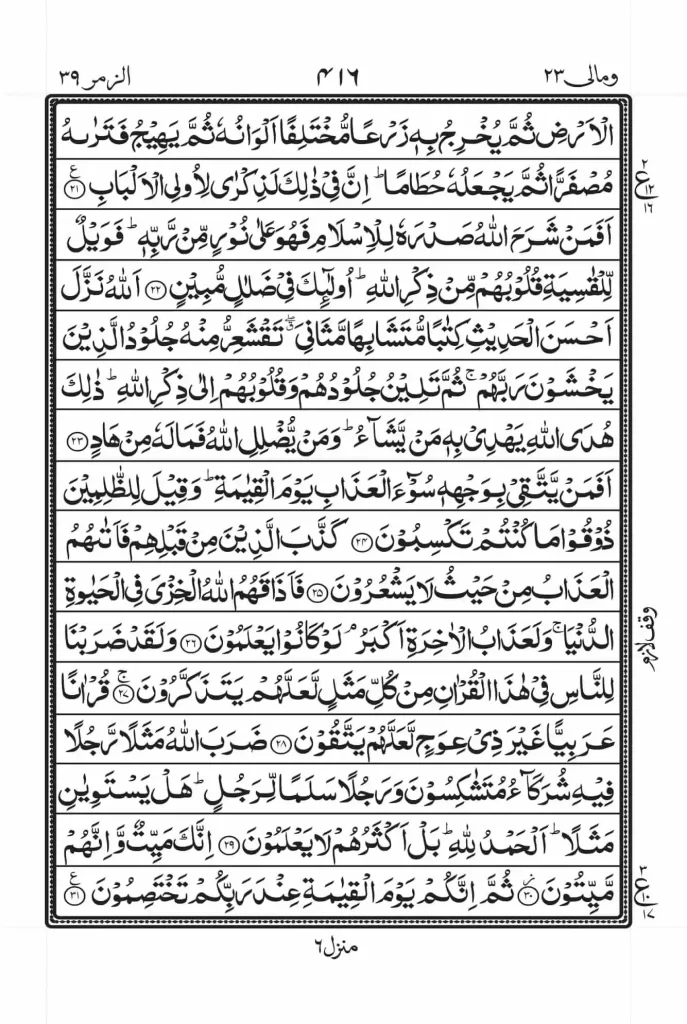 ومالى ٢٣ ٤١٦ الزمر ٣٩
الۡاَرۡضِ ثُمَّ يُخۡرِجُ بِهٖ زَرۡعًا مُّخۡتَلِفًا اَلۡوَانُهٗ ثُمَّ يَهِيۡجُ فَتَرٰٮهُ
مُصۡفَرًّا ثُمَّ يَجۡعَلُهٗ حُطَامًا ؕ اِنَّ فِىۡ ذٰلِكَ لَذِكۡرٰى لِاُولِى الۡاَلۡبَابِ ﴿۲۱﴾ ع
٢
ع ١٢
١٦
اَفَمَنۡ شَرَحَ اللّٰهُ صَدۡرَهٗ لِلۡاِسۡلَامِ فَهُوَ عَلٰى نُوۡرٍ مِّنۡ رَّبِّهٖ ؕ فَوَيۡلٌ
لِّلۡقٰسِيَةِ قُلُوۡبُهُمۡ مِّنۡ ذِكۡرِ اللّٰهِ ؕ اُولٰٓٮِٕكَ فِىۡ ضَلٰلٍ مُّبِيۡنٍ ﴿۲۲﴾ اَللّٰهُ نَزَّلَ
اَحۡسَنَ الۡحَدِيۡثِ كِتٰبًا مُّتَشَابِهًا مَّثَانِىَ ۖ تَقۡشَعِرُّ مِنۡهُ جُلُوۡدُ الَّذِيۡنَ
يَخۡشَوۡنَ رَبَّهُمۡ ۚ ثُمَّ تَلِيۡنُ جُلُوۡدُهُمۡ وَقُلُوۡبُهُمۡ اِلٰى ذِكۡرِ اللّٰهِ ؕ ذٰلِكَ
هُدَى اللّٰهِ يَهۡدِىۡ بِهٖ مَنۡ يَّشَآءُ ؕ وَمَنۡ يُّضۡلِلِ اللّٰهُ فَمَا لَهٗ مِنۡ هَادٍ ﴿۲۳﴾
اَفَمَنۡ يَّتَّقِىۡ بِوَجۡهِهٖ سُوۡٓءَ الۡعَذَابِ يَوۡمَ الۡقِيٰمَةِ ؕ وَقِيۡلَ لِلظّٰلِمِيۡنَ
ذُوۡقُوۡا مَا كُنۡتُمۡ تَكۡسِبُوۡنَ ﴿۲۴﴾ كَذَّبَ الَّذِيۡنَ مِنۡ قَبۡلِهِمۡ فَاَتٰٮهُمُ
الۡعَذَابُ مِنۡ حَيۡثُ لَا يَشۡعُرُوۡنَ ﴿۲۵﴾ فَاَذَاقَهُمُ اللّٰهُ الۡخِزۡىَ فِى الۡحَيٰوةِ
الدُّنۡيَا ۚ وَلَعَذَابُ الۡاٰخِرَةِ اَكۡبَرُ ۘ لَوۡ كَانُوۡا يَعۡلَمُوۡنَ ﴿۲۶﴾ وَلَقَدۡ ضَرَبۡنَا
وقف لازم
لِلنَّاسِ فِىۡ هٰذَا الۡقُرۡاٰنِ مِنۡ كُلِّ مَثَلٍ لَّعَلَّهُمۡ يَتَذَكَّرُوۡنَ ﴿۲۷﴾ ۚ قُرۡاٰنًا
عَرَبِيًّا غَيۡرَ ذِىۡ عِوَجٍ لَّعَلَّهُمۡ يَتَّقُوۡنَ ﴿۲۸﴾ ضَرَبَ اللّٰهُ مَثَلًا رَّجُلًا
فِيۡهِ شُرَكَآءُ مُتَشٰكِسُوۡنَ وَرَجُلًا سَلَمًا لِّرَجُلٍ ؕ هَلۡ يَسۡتَوِيٰنِ
مَثَلًا ؕ اَلۡحَمۡدُ لِلّٰهِ ؕ بَلۡ اَكۡثَرُهُمۡ لَا يَعۡلَمُوۡنَ ﴿۲۹﴾ اِنَّكَ مَيِّتٌ وَّاِنَّهُمۡ
مَّيِّتُوۡنَ ﴿۳۰﴾ ثُمَّ اِنَّكُمۡ يَوۡمَ الۡقِيٰمَةِ عِنۡدَ رَبِّكُمۡ تَخۡتَصِمُوۡنَ ﴿۳۱﴾ ع
٣
ع ١٠
١٧
منزل ٦